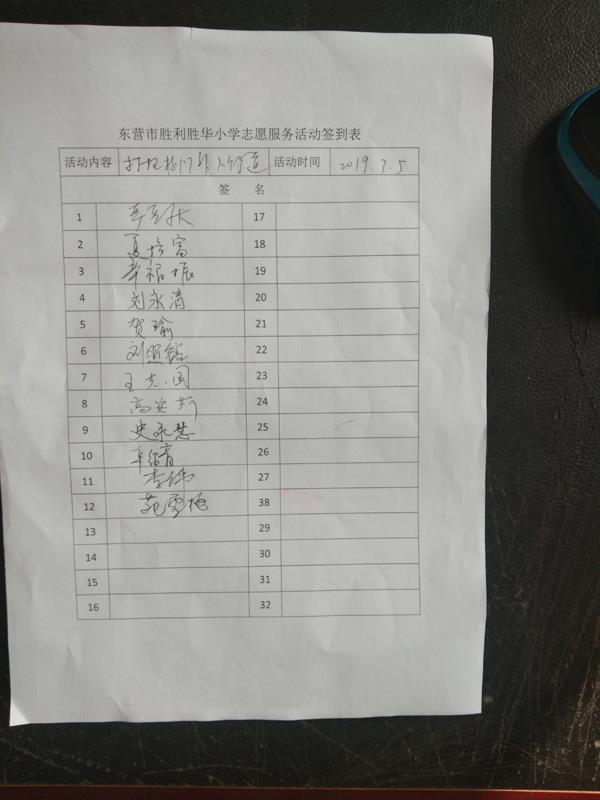 东营市胜利胜华小学志愿服务活动签到表
活动内容 打扫校门外人行道 活动时间 2019.3.5
签 名
1 17
2 夏培富 18
3 辛禄振 19
4 刘永清 20
5 贺瑜 21
6 刘 22
7 王志国 23
8 高安莉 24
9 史永慧 25
10 26
11 李伟 27
12 苑雪梅 38
13 29
14 30
15 31
16 32